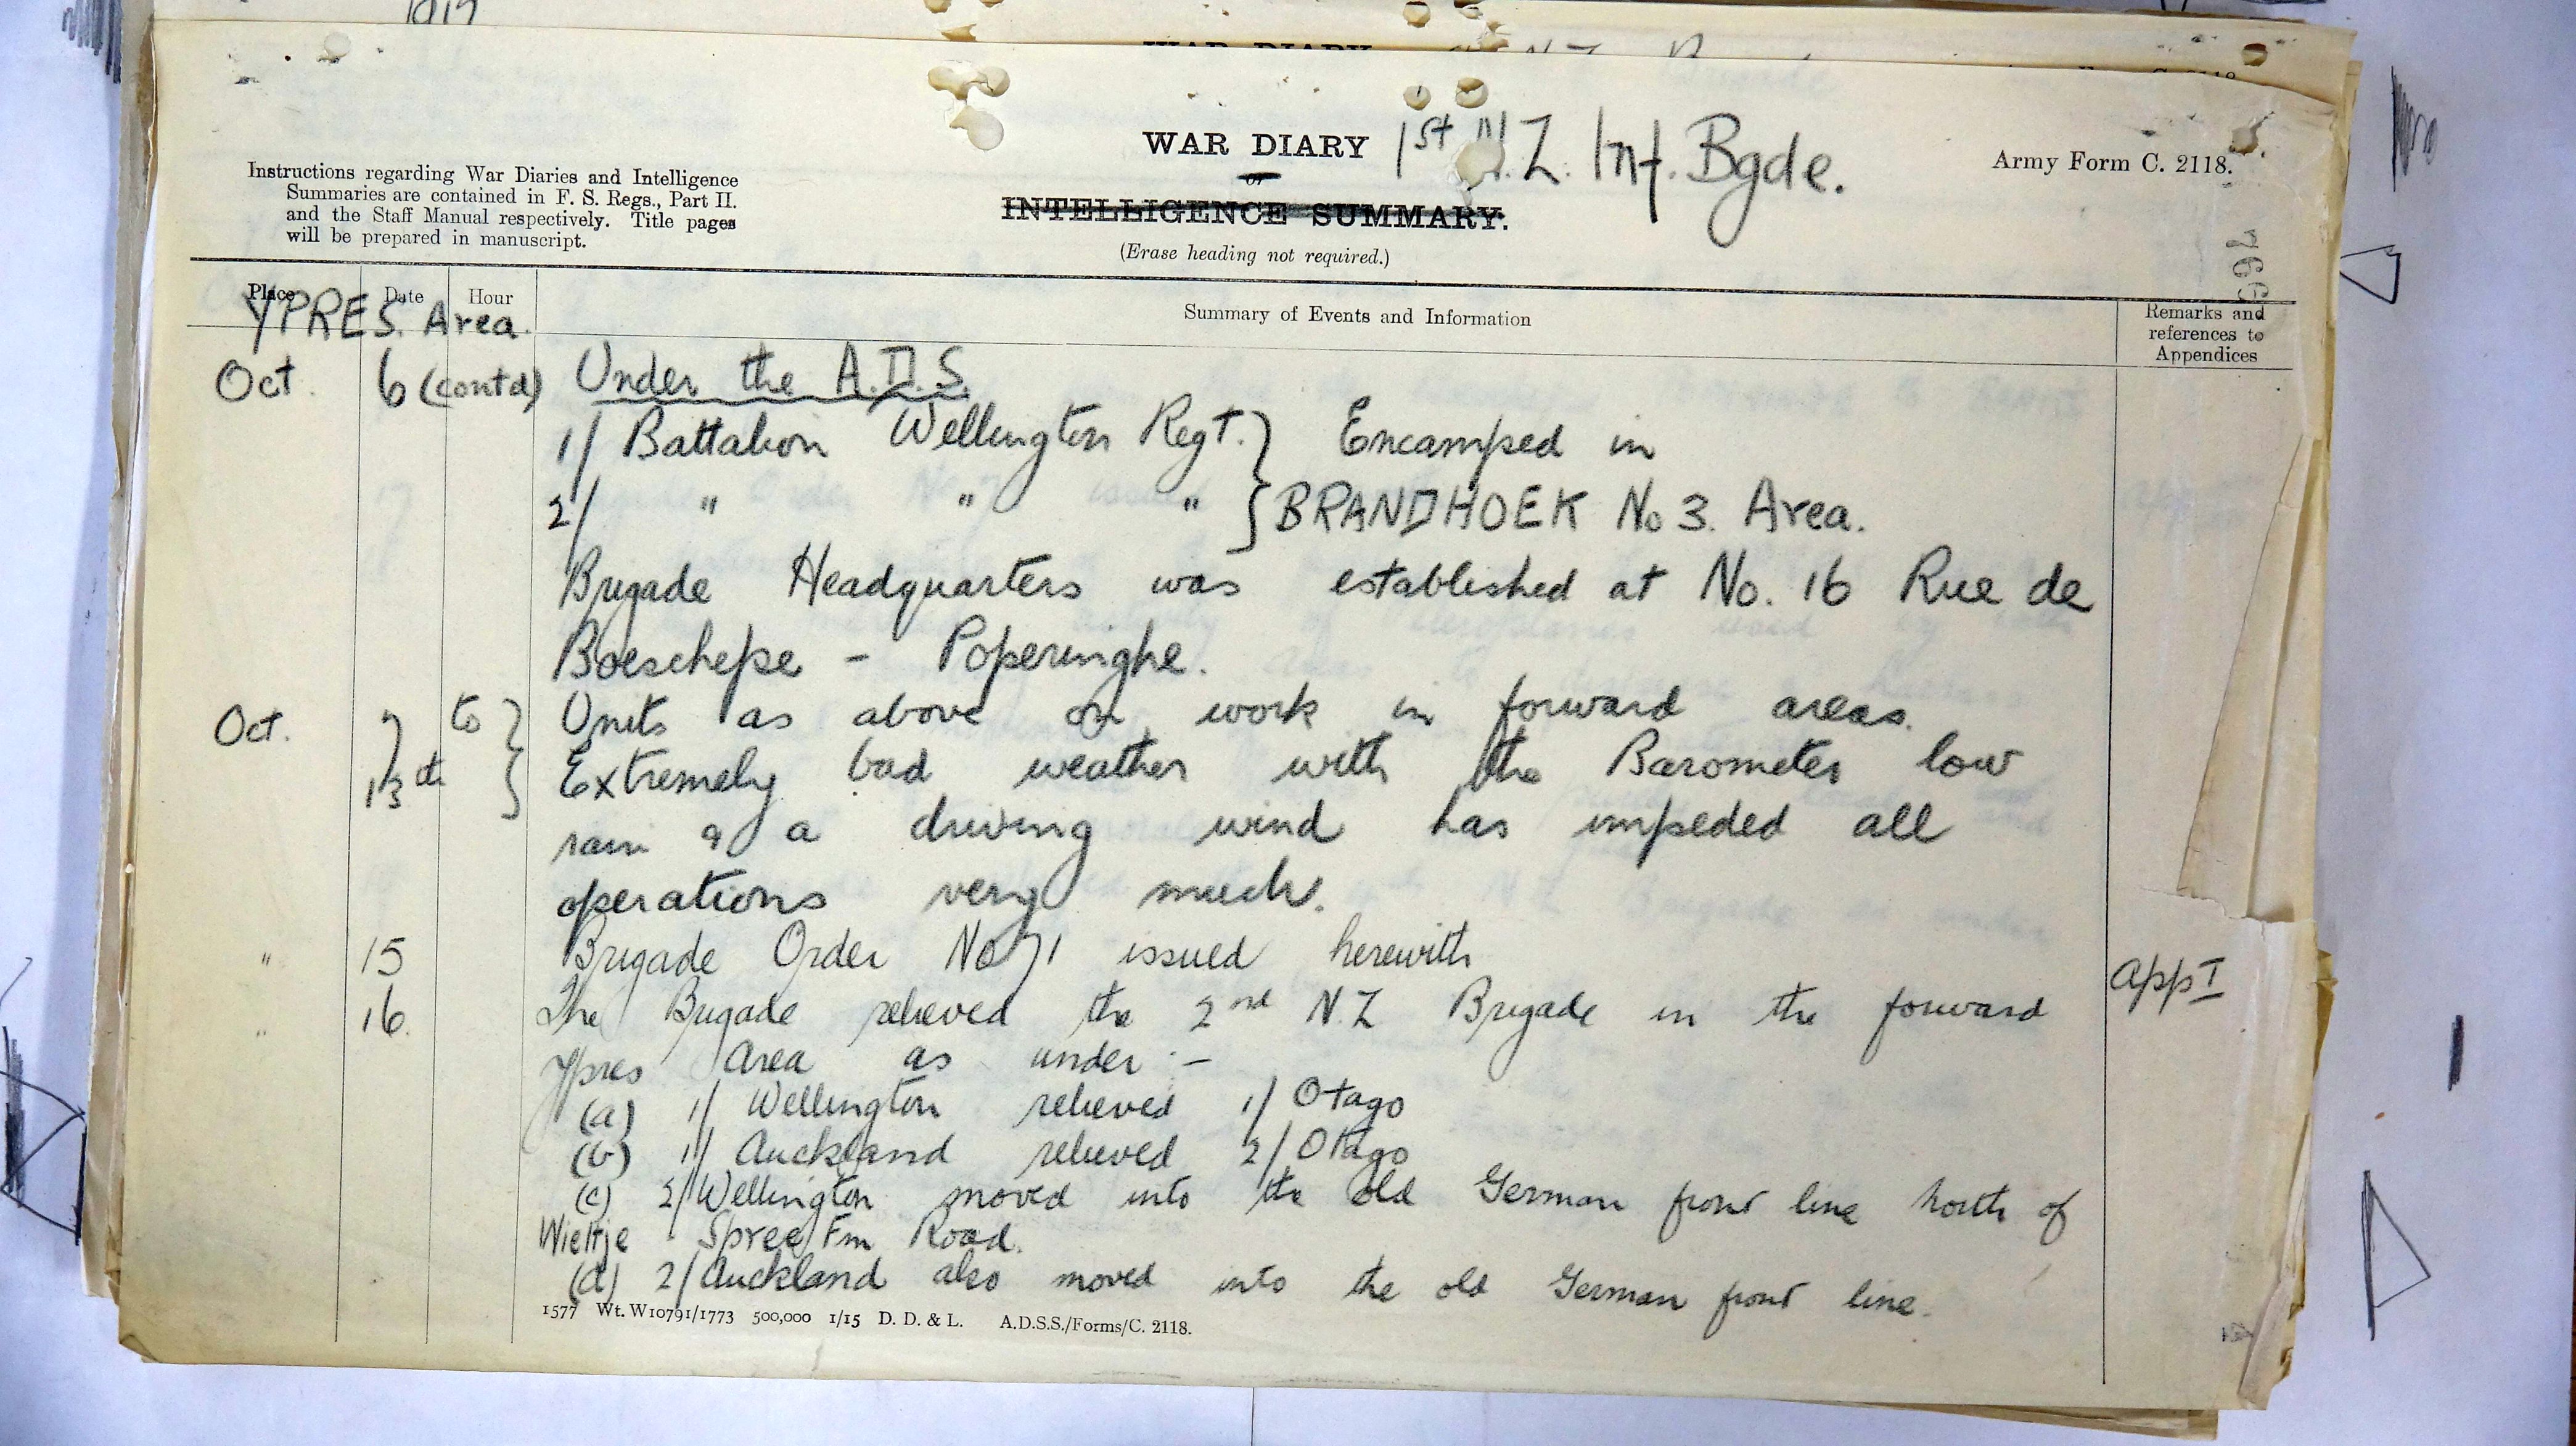 1917
WAR DIARY
WAR DIARY 1st N.Z. Inf. Bgde.
or
INTELLIGENCE SUMMARY.
(Erase heading not required.)
Army Form C. 2118.
Instructions regarding War Diaries and Intelligence
Summaries are contained in F. S. Regs., Part II.
and the Staff Manual respectively. Title pages
will be prepared in manuscript.
Place Date Hour
Summary of Events and Information
Remarks and
references to
Appendices
YPRES Area.
Oct. 6 (contd) Under the A.D.S.
1/ Battalion Wellington Regt. } Encamped in
2/ " " " } BRANDHOEK No 3. Area.
Brigade Headquarters was established at No. 16 Rue de
Boeschepe - Poperinghe.
Oct. 7 to } Units as above on work in forward areas.
13th } Extremely bad weather with the Barometer low
rain & a driving wind has impeded all
operations very much.
" 15 Brigade Order No 71 issued herewith App I
" 16. The Brigade relieved the 2nd N.Z Brigade in the forward
Ypres Area as under :-
(a) 1/ Wellington relieved 1/ Otago
(b) 1/ Auckland relieved 2/ Otago
(c) 2/ Wellington moved into the old German front line North of
Wieltje Spree Fm Road.
(d) 2/ Auckland also moved into the old German front line.
1577 Wt. W10791/1773 500,000 1/15 D. D. & L. A.D.S.S./Forms/C. 2118.